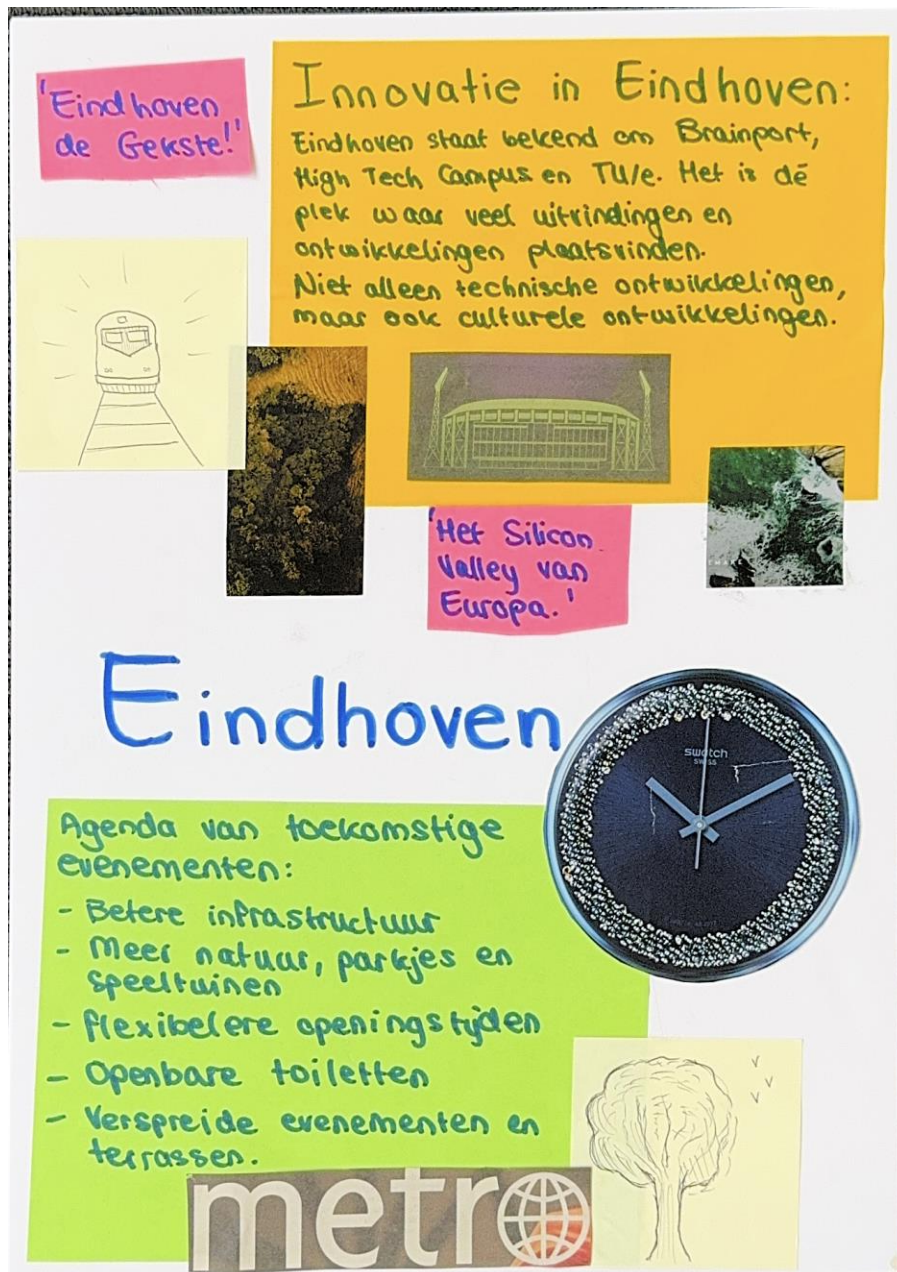 'Eindhoven
de Gekste!'
Innovatie in Eindhoven:
Eindhoven staat bekend om Brainport,
High Tech Campus en TU/e. Het is dé
plek waar veel uitvindingen en
ontwikkelingen plaatsvinden.
Niet alleen technische ontwikkelingen,
maar ook culturele ontwikkelingen.
'Het Silicon
Valley van
Europa.'
Eindhoven
swatch
SWISS
Agenda van toekomstige
evenementen:
- Betere infrastructuur
- Meer natuur, parkjes en
speeltuinen
- Flexibelere openingstijden
- Openbare toiletten
- Verspreide evenementen en
terrassen.
metro